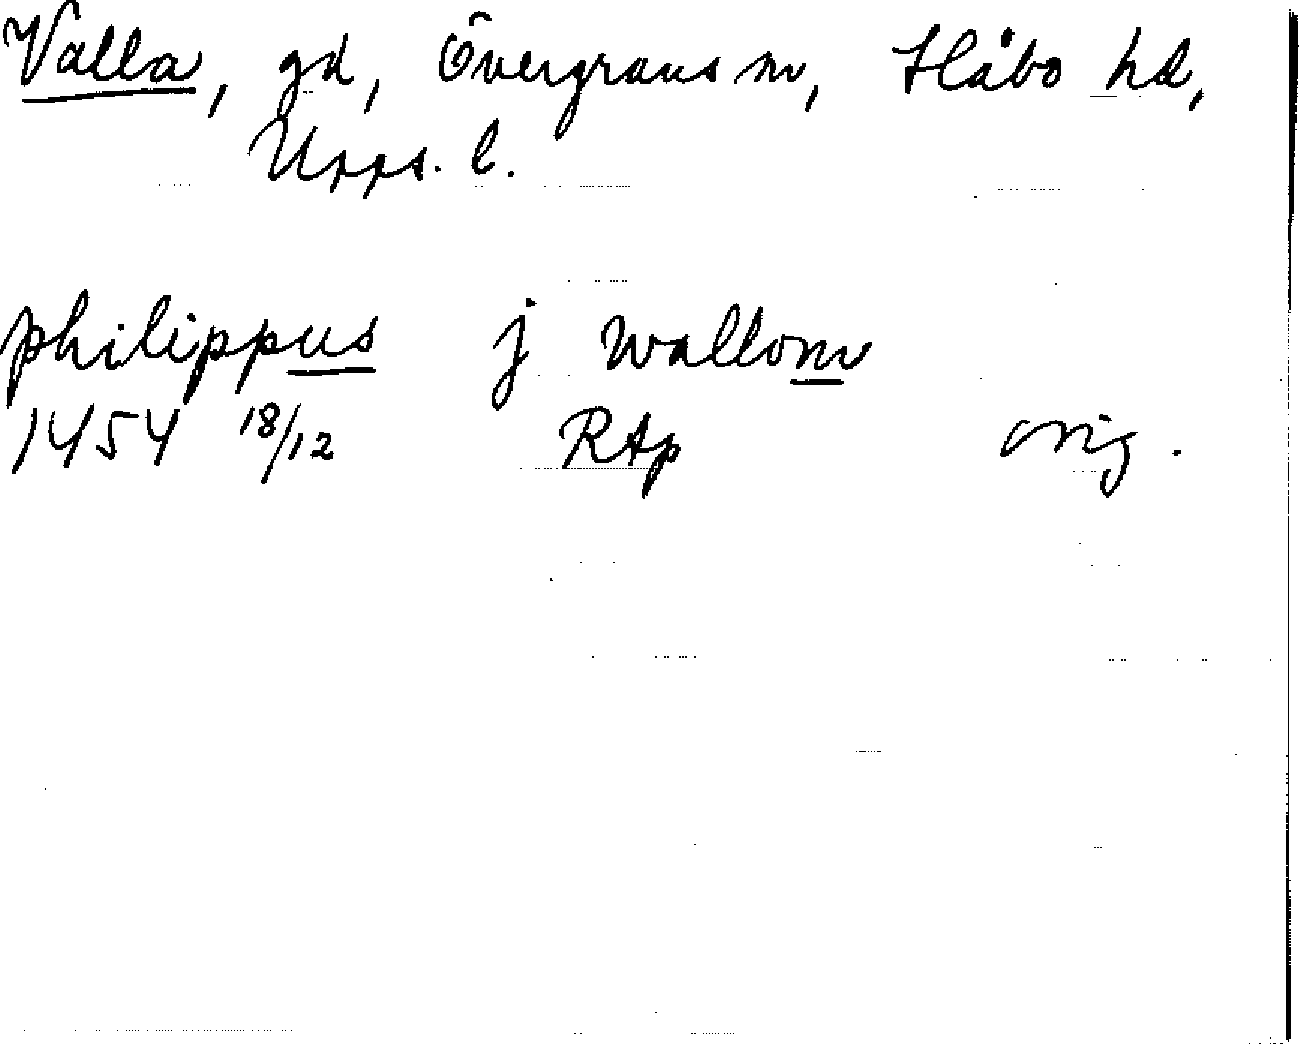 Valla, gd, Övergrans sn, Håbo hd,
Upps. l.
philippus j wallom
1454 18/12 RAp orig.